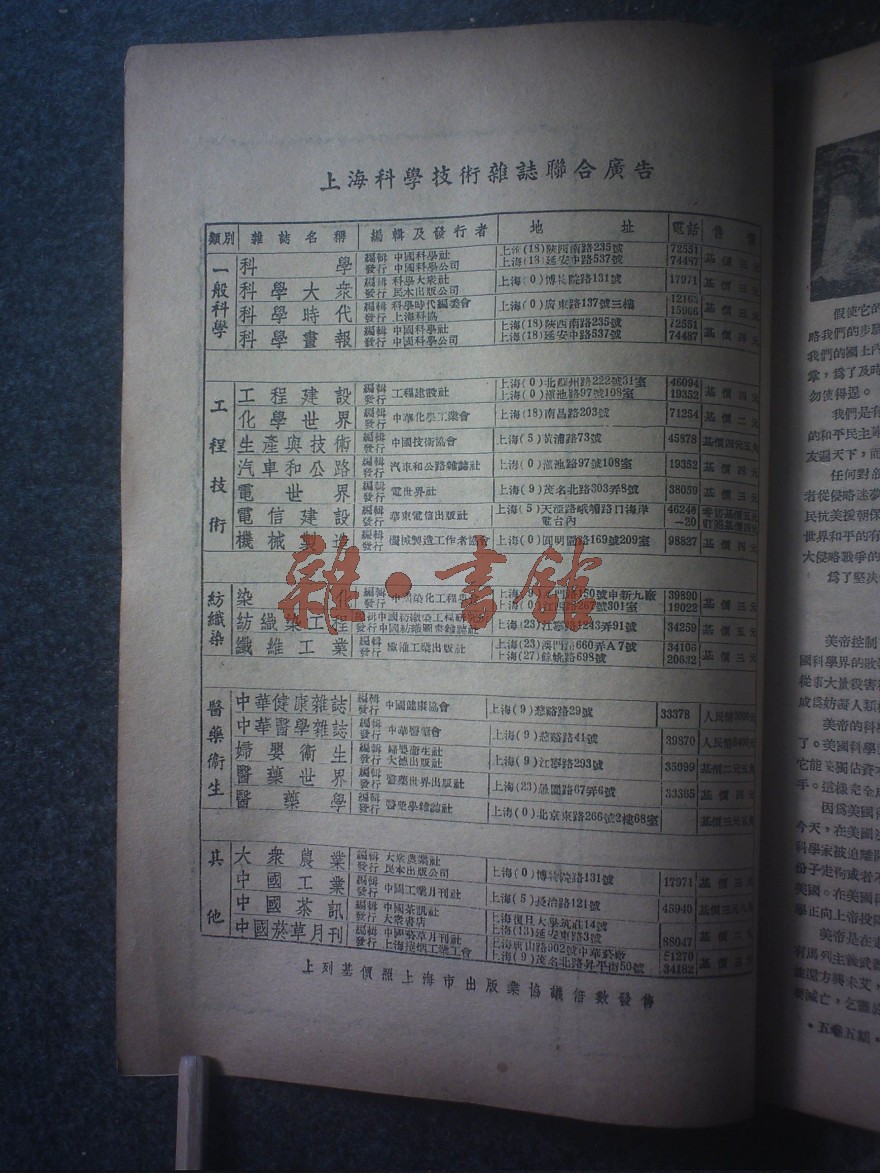 上海科學技術雜誌聯合廣告
類別 雜誌名稱 編輯及發行者 地址 電話 售價
一般科學
科學 編輯 中國科學社 發行 中國科學公司 上海(18)陝西南路235號 上海(18)延安中路537號 72551 74487 基價三元
科學大衆 編輯 科學大衆社 發行 民本出版公司 上海(0)博物院路131號 17971 基價三元
科學時代 編輯 科學時代編委會 發行 上海科協 上海(0)廣東路137號三樓 12165 15966 基價三元
科學畫報 編輯 中國科學社 發行 中國科學公司 上海(18)陝西南路235號 上海(18)延安中路537號 72551 74487 基價四元
工程技術
工程建設 編輯 發行 工程建設社 上海(0)北蘇州路222號31室 上海(0)滇池路97號108室 46094 19352 基價四元
化學世界 編輯 發行 中華化學工業會 上海(18)南昌路203號 71254 基價二元
生產與技術 編輯 發行 中國技術協會 上海(5)黃浦路73號 45878 基價四元五角
汽車和公路 編輯 發行 汽車和公路雜誌社 上海(0)滇池路97號108室 19352 基價四元
電世界 編輯 發行 電世界社 上海(9)茂名北路303弄8號 38059 基價三元
電信建設 編輯 發行 華東電信出版社 上海(5)天潼路峨嵋路口海岸電台內 46240—20
機械製造 編輯 發行 機械製造工作者協會 上海(0)圓明園路169號209室 98827 基價四元
紡織染
染化 編輯 發行 中國染化工程學會 39890 19022 基價三元
紡織染工程 上海(23)江寧路1243弄91號 34259 基價五元
纖維工業 編輯 發行 纖維工業出版社 上海(23)澳門路660弄A7號 上海(27)餘姚路698號 34106 20632 基價三元
醫藥衛生
中華健康雜誌 編輯 發行 中國健康協會 上海(9)慈谿路29號 33378 人民幣
中華醫學雜誌 編輯 發行 中華醫學會 上海(9)慈谿路41號 39870 人民幣
婦嬰衛生 編輯 婦嬰衛生社 發行 大德出版社 上海(9)江寧路293號 35099 基價二元五角
醫藥世界 編輯 發行 醫藥世界出版社 上海(23)愚園路67弄6號 33385 基價四元
醫藥學 編輯 發行 醫藥學雜誌社 上海(0)北京東路266號2樓68室 基價三元五角
其他
大衆農業 編輯 大衆農業社 發行 民本出版公司 上海(0)博物院路131號 17971 基價三元
中國工業 編輯 發行 中國工業月刊社 上海(5)長治路121號 45940
中國茶訊 編輯 中國茶訊社 發行 大衆書店 上海復旦大學筑莊14號 上海(13)延安東路3號 88047 基價二元
中國菸草月刊 編輯 中國菸草月刊社 發行 上海捲烟工業工會 上海唐山路902號中華菸廠 上海(9)茂名北路昇平街50號 51270 34182 基價三元
上列基價照上海市出版業協議倍數發售
雜·書館
假使它的
略我們的步驟
我們的國土內
掌，爲了及時
勿使得逞。
我們是有
的和平民主軍
友遍天下，而
任何對
者從侵略迷夢
民抗美援朝保
世界和平的有
大侵略戰爭的
爲了堅決
美帝控制
國科學界的敗
從事大量殺害
成爲妨礙人類
美帝的科學
了。美國科學
它能
手。這樣完全
因爲美國
今天，在美國
科學家被迫離開
份子走狗或者不
美國。在美國
學正向上帝投降
美帝是在
有馬列主義武
遠方興未艾，
滅亡，
·五卷五期·